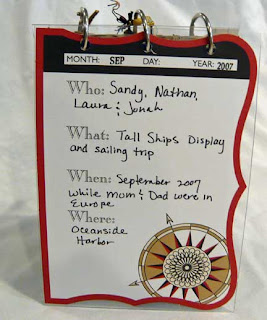 MONTH: SEP DAY: YEAR: 2007
Who: Sandy, Nathan,
Laura & Jonah
What: Tall Ships Display
and sailing trip
When: September 2007
while mom & Dad were in
Europe
Where:
Oceanside
Harbor